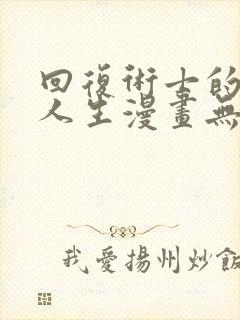 回復術士的
人生漫畫無
我愛揚州炒飯